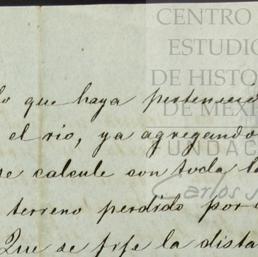 CENTRO
ESTUDIO
DE HISTO
DE MEX
FUNDAC
Carlos S
lo que haya pertenecid
el rio, ya agregando
se calcule con toda la
terreno perdido por
Que se fije la dista